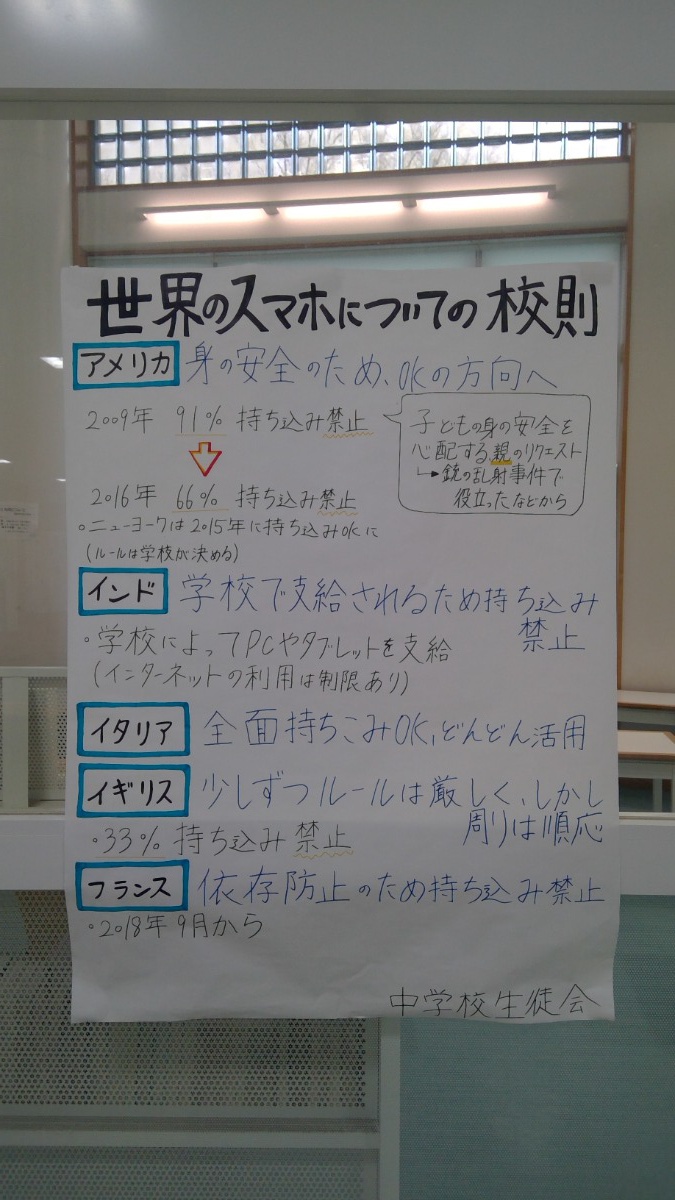 世界のスマホについての校則
アメリカ 身の安全のため、OKの方向へ
2009年 91% 持ち込み禁止
子どもの身の安全を
心配する親のリクエスト
→銃の乱射事件で
役立ったなどから
2016年 66% 持ち込み禁止
。ニューヨークは2015年に持ち込みOKに
(ルールは学校が決める)
インド 学校で支給されるため持ち込み
禁止
・学校によってPCやタブレットを支給
(インターネットの利用は制限あり)
イタリア 全面持ちこみOK、どんどん活用
イギリス 少しずつルールは厳しく、しかし
周りは順応
・33% 持ち込み禁止
フランス 依存防止のため持ち込み禁止
・2018年9月から
中学校生徒会